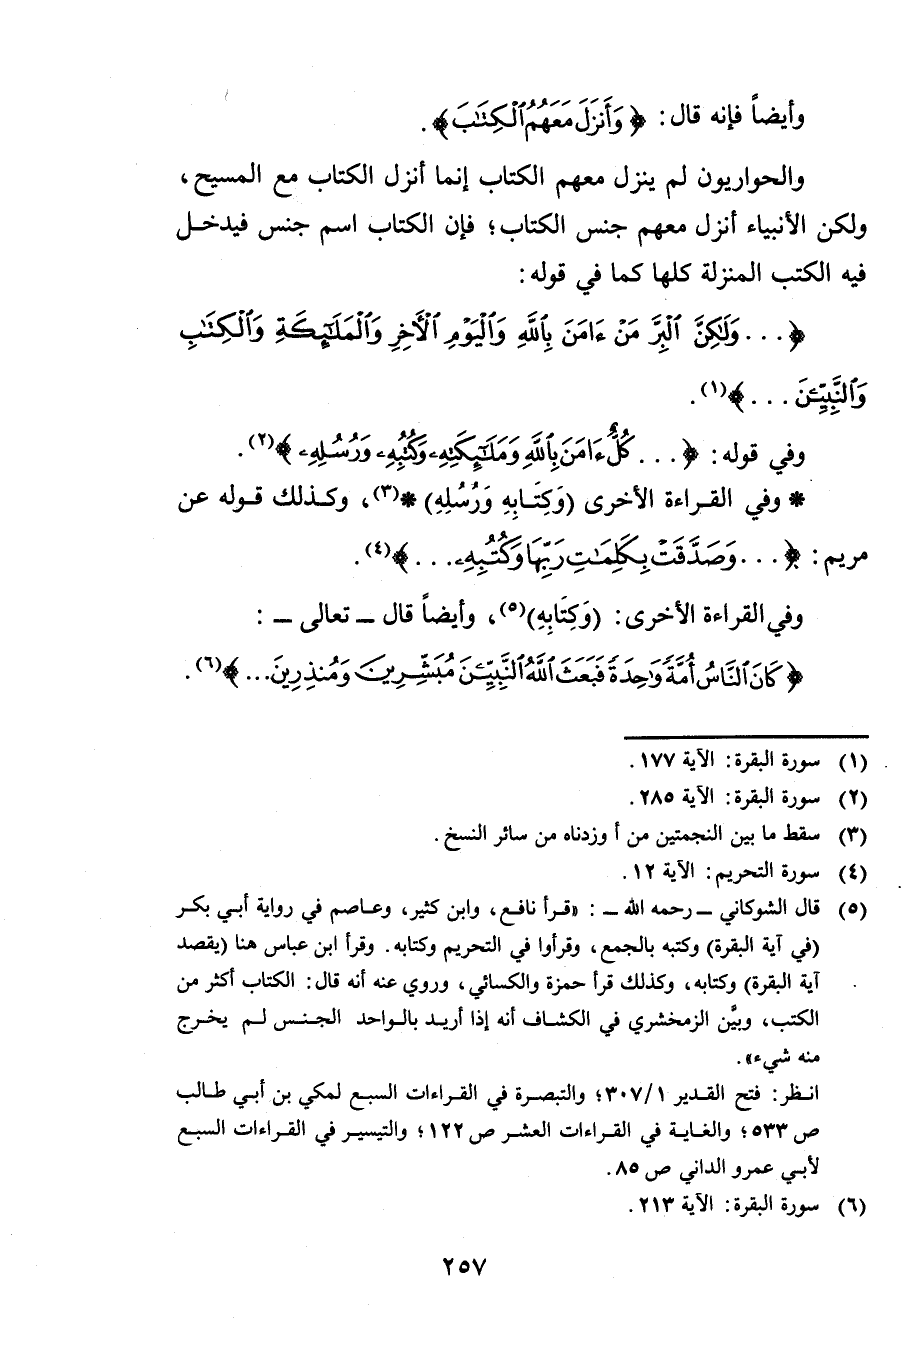 وأيضاً فإنه قال: ﴿وَأَنزَلَ مَعَهُمُ ٱلْكِتَٰبَ﴾.
والحواريون لم ينزل معهم الكتاب إنما أنزل الكتاب مع المسيح،
ولكن الأنبياء أنزل معهم جنس الكتاب؛ فإن الكتاب اسم جنس فيدخل
فيه الكتب المنزلة كلها كما في قوله:
﴿... وَلَٰكِنَّ ٱلْبِرَّ مَنْ ءَامَنَ بِٱللَّهِ وَٱلْيَوْمِ ٱلْأَخِرِ وَٱلْمَلَٰٓئِكَةِ وَٱلْكِتَٰبِ
وَٱلنَّبِيِّـۧنَ ...﴾(١).
وفي قوله: ﴿... كُلٌّ ءَامَنَ بِٱللَّهِ وَمَلَٰٓئِكَتِهِۦ وَكُتُبِهِۦ وَرُسُلِهِۦ﴾(٢).
* وفي القراءة الأخرى (وَكِتَابِهِ وَرُسُلِهِ) *(٣)، وكذلك قوله عن
مريم: ﴿... وَصَدَّقَتْ بِكَلِمَٰتِ رَبِّهَا وَكُتُبِهِۦ...﴾(٤).
وفي القراءة الأخرى: (وَكِتَابِهِ)(٥)، وأيضاً قال ــ تعالى ــ :
﴿كَانَ ٱلنَّاسُ أُمَّةً وَٰحِدَةً فَبَعَثَ ٱللَّهُ ٱلنَّبِيِّـۧنَ مُبَشِّرِينَ وَمُنذِرِينَ...﴾(٦).
(١) سورة البقرة: الآية ١٧٧.
(٢) سورة البقرة: الآية ٢٨٥.
(٣) سقط ما بين النجمتين من أ وزدناه من سائر النسخ.
(٤) سورة التحريم: الآية ١٢.
(٥) قال الشوكاني ــ رحمه الله ــ : «قرأ نافع، وابن كثير، وعاصم في رواية أبي بكر
(في آية البقرة) وكتبه بالجمع، وقرأوا في التحريم وكتابه. وقرأ ابن عباس هنا (يقصد
آية البقرة) وكتابه، وكذلك قرأ حمزة والكسائي، وروي عنه أنه قال: الكتاب أكثر من
الكتب، وبيَّن الزمخشري في الكشاف أنه إذا أريد بالواحد الجنس لم يخرج
منه شيء».
انظر: فتح القدير ٣٠٧/١؛ والتبصرة في القراءات السبع لمكي بن أبي طالب
ص ٥٣٣؛ والغاية في القراءات العشر ص ١٢٢؛ والتيسير في القراءات السبع
لأبي عمرو الداني ص ٨٥.
(٦) سورة البقرة: الآية ٢١٣.
٢٥٧